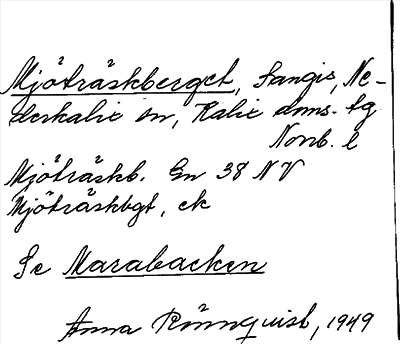 Mjöträskberget, Sangis, Ne-
derkalix sn, Kalix doms. tg
Norrb. l
Mjöträskb. En 38 NV
Mjöträskbgt, ek
Se Marabacken
Anna Rönnquist, 1949